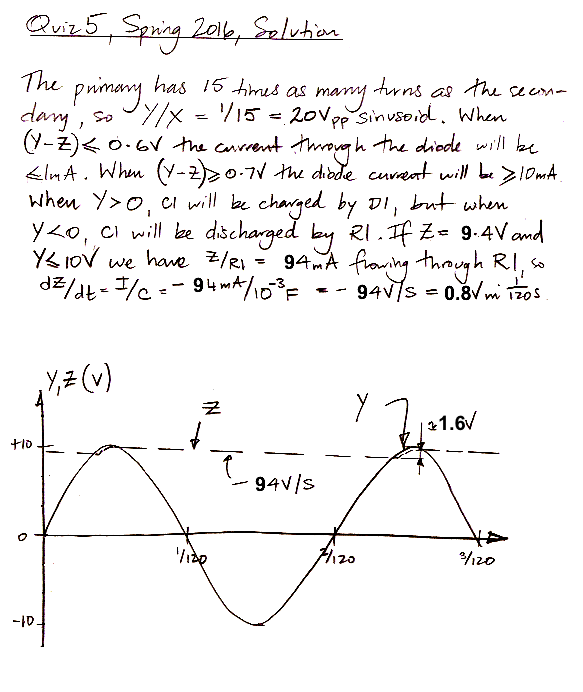 Quiz 5, Spring 2016, Solution
The primary has 15 times as many turns as the secon-
dary, so Y/X = 1/15 = 20Vpp sinusoid. When
(Y-Z) ≤ 0.6V the current through the diode will be
≤ 1mA. When (Y-Z) ≥ 0.7V the diode current will be ≥ 10mA.
When Y>0, C1 will be charged by D1, but when
Y<0, C1 will be discharged by R1. If Z = 9.4V and
Y≤10V we have Z/R1 = 94mA flowing through R1, so
dZ/dt = I/C = - 94mA/10⁻³F = - 94V/S = 0.8V in 1/120 s.
Y, Z (V)
Z
Y
≈1.6V
+10
- 94V/S
0
1/120
2/120
3/120
-10